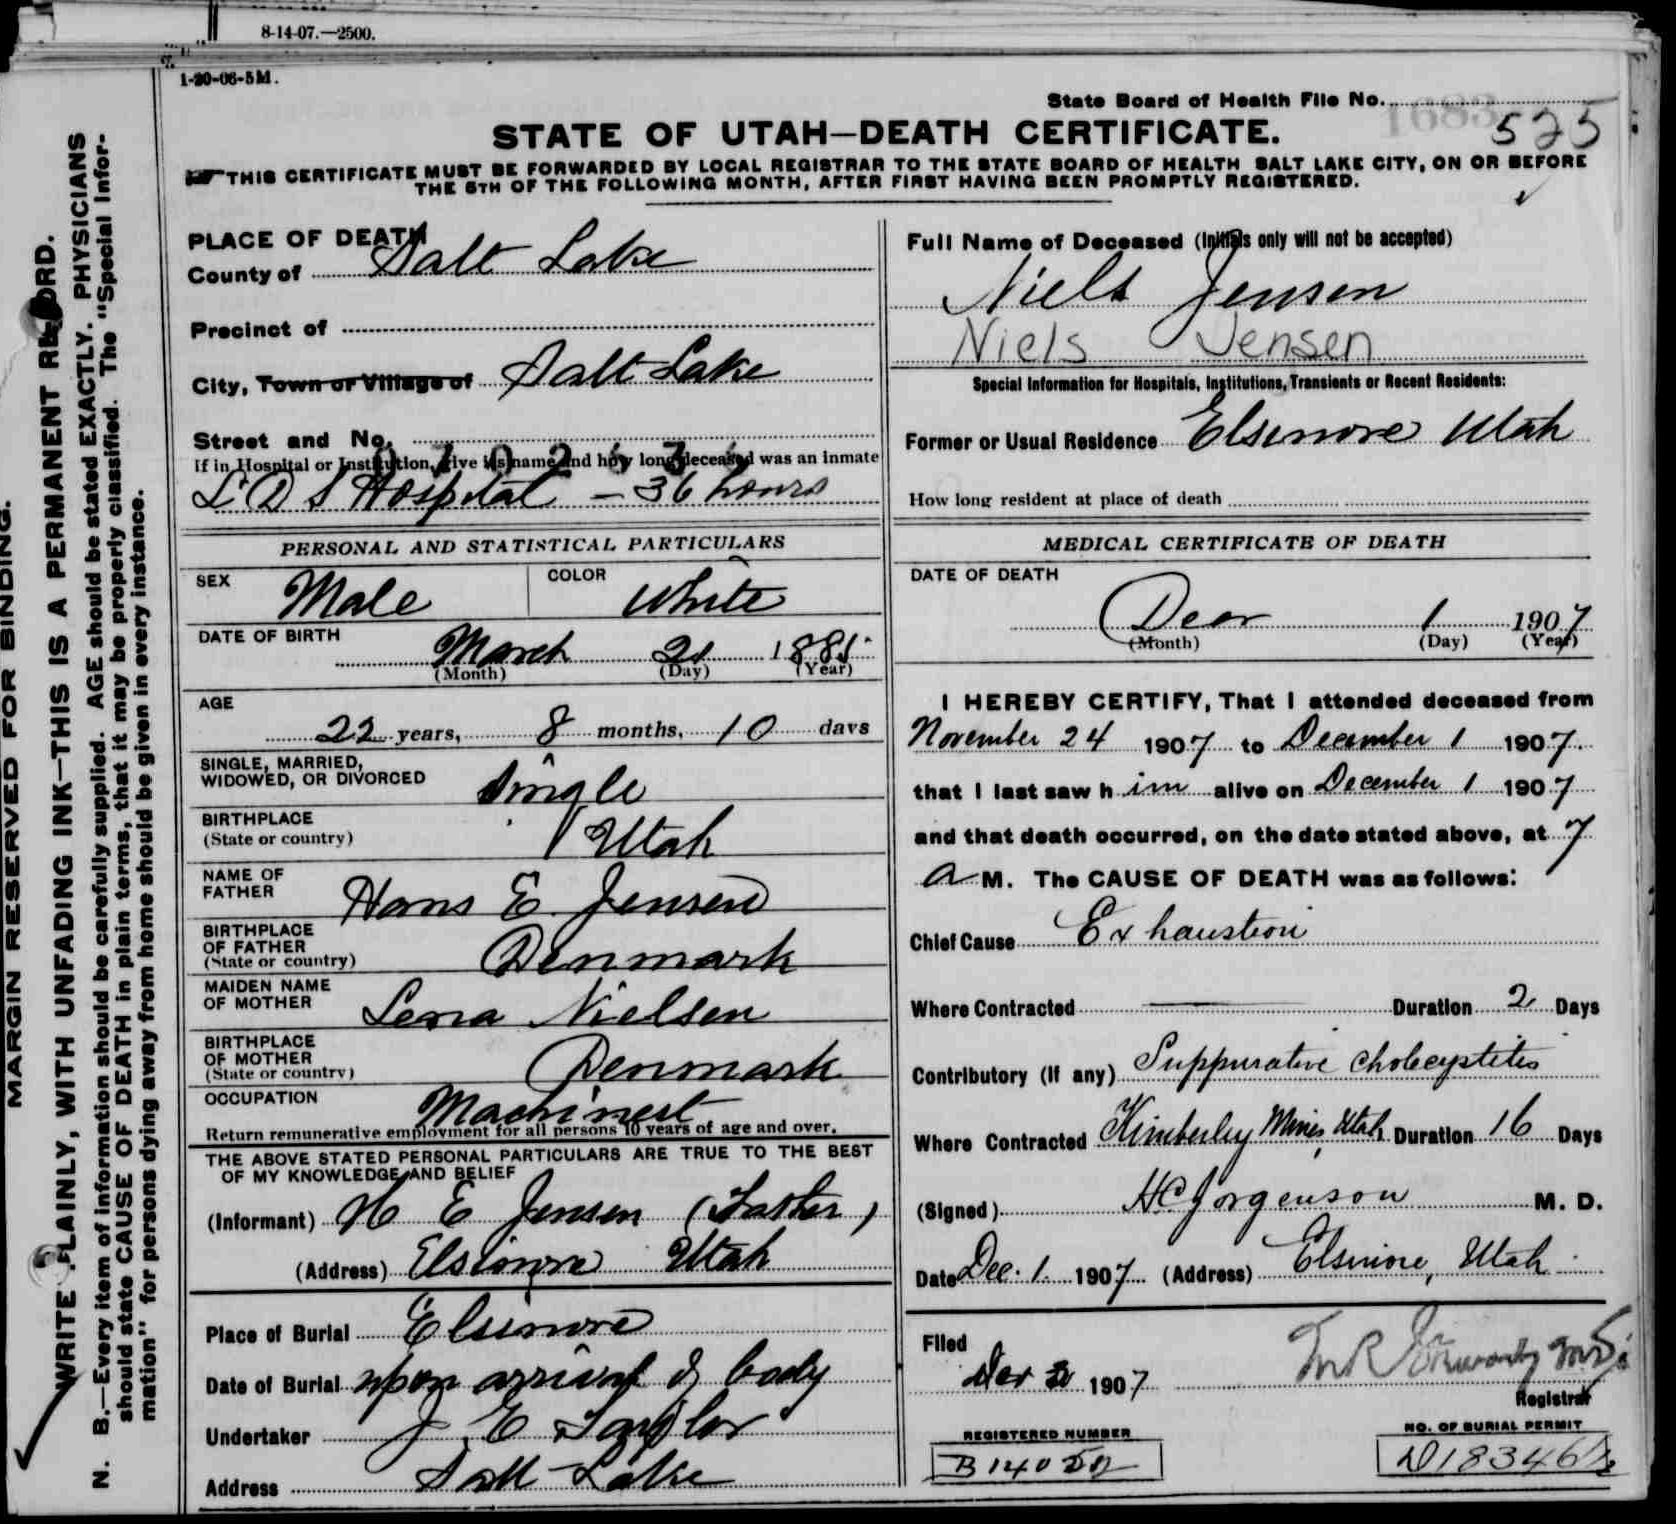 8-14-07.—2500.
1-20-06-5M.
State Board of Health File No. 525
1683
STATE OF UTAH—DEATH CERTIFICATE.
THIS CERTIFICATE MUST BE FORWARDED BY LOCAL REGISTRAR TO THE STATE BOARD OF HEALTH SALT LAKE CITY, ON OR BEFORE
THE 5TH OF THE FOLLOWING MONTH, AFTER FIRST HAVING BEEN PROMPTLY REGISTERED.
MARGIN RESERVED FOR BINDING.
WRITE PLAINLY, WITH UNFADING INK—THIS IS A PERMANENT RECORD.
N. B.—Every item of information should be carefully supplied. AGE should be stated EXACTLY. PHYSICIANS
should state CAUSE OF DEATH in plain terms, that it may be properly classified. The "Special Infor-
mation" for persons dying away from home should be given in every instance.
PLACE OF DEATH
County of Salt Lake
Precinct of
City, Town or Village of Salt Lake
Street and No.
If in Hospital or Institution, give its name and how long deceased was an inmate
L D S Hospital - 36 hours
PERSONAL AND STATISTICAL PARTICULARS
SEX Male COLOR White
DATE OF BIRTH
March 21 1885
(Month) (Day) (Year)
AGE
22 years, 8 months, 10 days
SINGLE, MARRIED,
WIDOWED, OR DIVORCED Single
BIRTHPLACE
(State or country) Utah
NAME OF
FATHER Hans E. Jensen
BIRTHPLACE
OF FATHER
(State or country) Denmark
MAIDEN NAME
OF MOTHER Lena Nielsen
BIRTHPLACE
OF MOTHER
(State or country) Denmark
OCCUPATION Machinest
Return remunerative employment for all persons 10 years of age and over.
THE ABOVE STATED PERSONAL PARTICULARS ARE TRUE TO THE BEST
OF MY KNOWLEDGE AND BELIEF
(Informant) H E Jensen (Father)
(Address) Elsinore Utah
Place of Burial Elsinore
Date of Burial upon arrival of body
Undertaker J E Taylor
Address Salt Lake
Full Name of Deceased (Initials only will not be accepted)
Niels Jensen
Niels Jensen
Special Information for Hospitals, Institutions, Transients or Recent Residents:
Former or Usual Residence Elsinore Utah
How long resident at place of death
MEDICAL CERTIFICATE OF DEATH
DATE OF DEATH
Decr 1 1907
(Month) (Day) (Year)
I HEREBY CERTIFY, That I attended deceased from
November 24 1907 to December 1 1907.
that I last saw h im alive on December 1 1907
and that death occurred, on the date stated above, at 7
a M. The CAUSE OF DEATH was as follows:
Chief Cause Exhaustion
Where Contracted Duration 2 Days
Contributory (if any) Suppurative Cholecystetes
Where Contracted Kimberley Mines, Utah, Duration 16 Days
(Signed) HC Jorgenson M. D.
Date Dec. 1. 1907 (Address) Elsinore, Utah
Filed
Dec 2 1907
Registrar
REGISTERED NUMBER
NO. OF BURIAL PERMIT